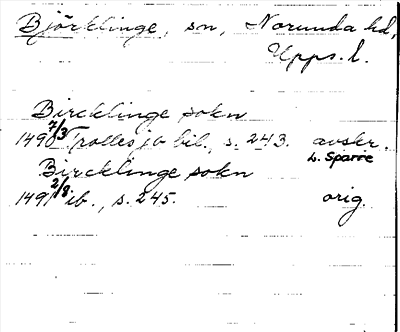 Björklinge, sn, Norunda hd,
Upps. l.
Bircklinge sokn
1490 7/3 Trolles jb bil., s. 243. avskr.
L. Sparre
Bircklinge sokn
1491 2/8 ib., s. 245. orig.